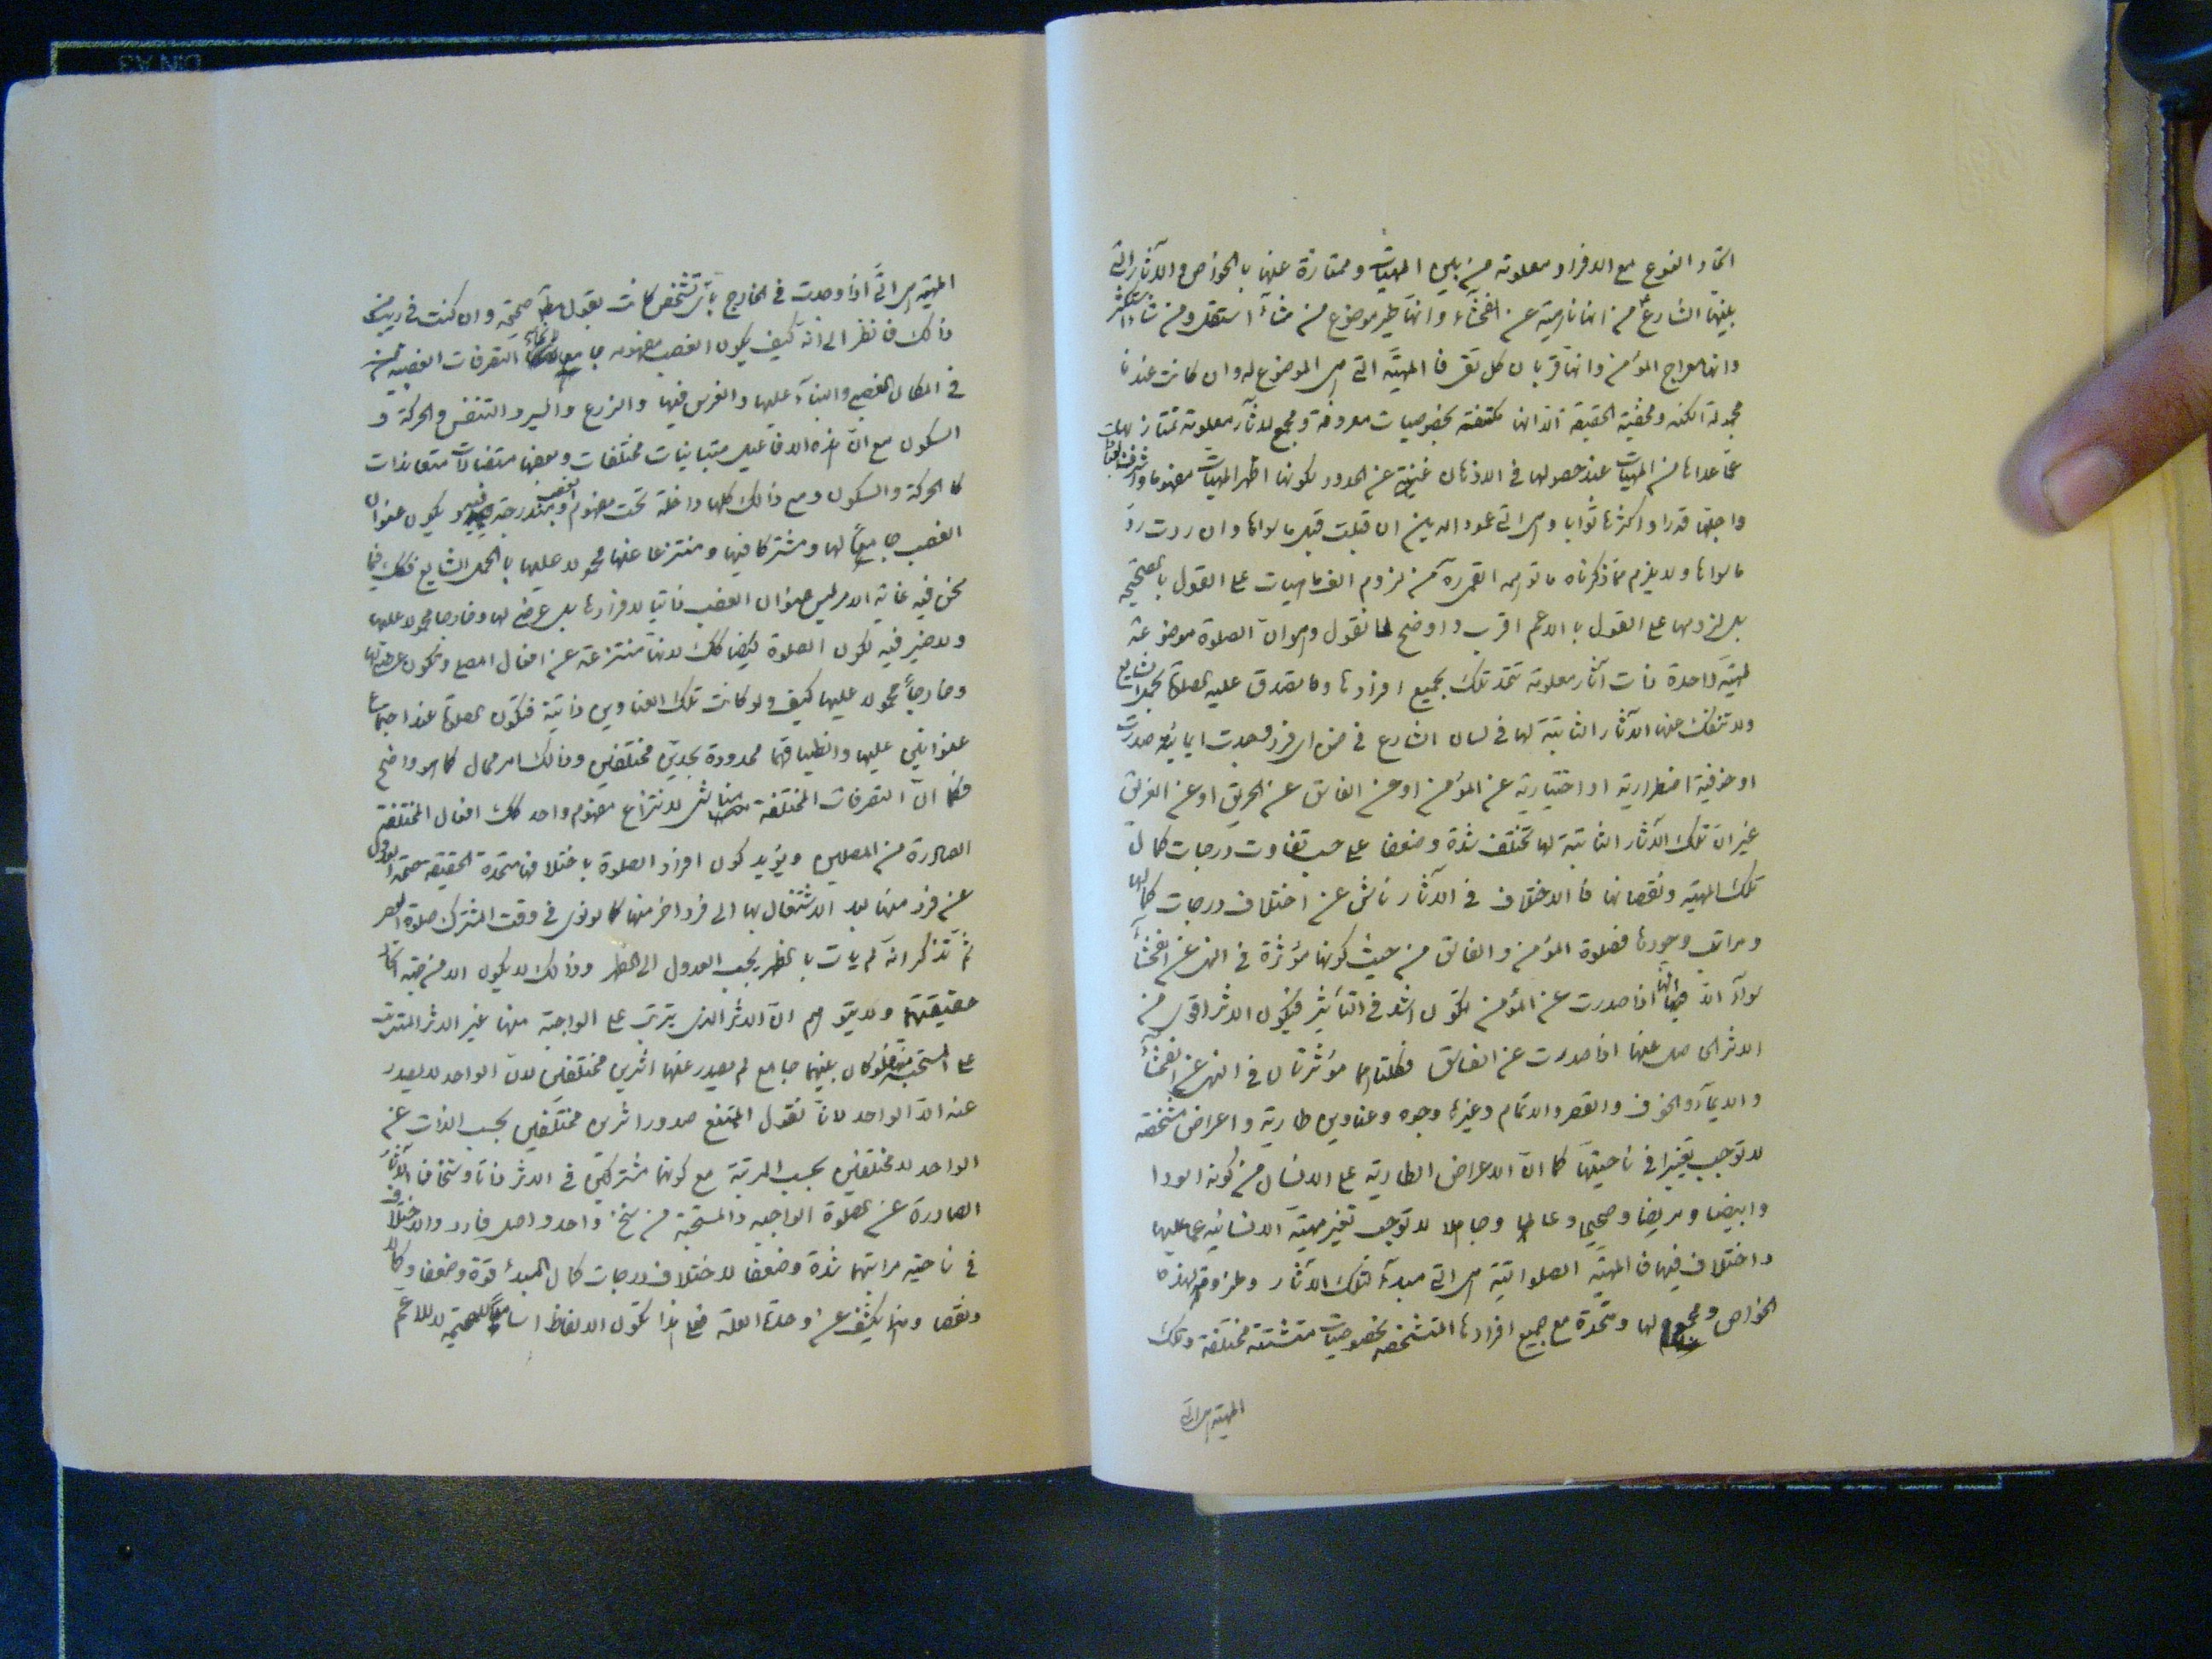 اتحاد النوع مع الافراد معلومة من بين المهيات وممتازة عنها بالخواص والآثار التي
بينها الشارع من انها ناهية عن الفحشاء وانها خير موضوع من شاء استقل ومن شاء استكثر
وانها معراج المؤمن وانها قربان كل تقي فالمهية التي هي الموضوع له وان كانت عندنا
مجهولة الكنه ومخفية الحقيقة الا انها مكتنفة بخصوصيات معروفة ومجمع لآثار معلومة تمتاز بها
عما عداها من المهيات عند حصولها في الاذهان غنية عن الحدود لكونها اظهر المهيات مفهوما
واجلها قدرا واكثرها ثوابا وهي التي عمود الدين ان قبلت قبل ما سواها وان ردت رد
ما سواها ولا يلزم مما ذكرناه ما توهمه القمي ره من لزوم الف مهيات على القول بالصحيحة
بل لزومها على القول بالاعم اقرب واوضح لما نقول وهو ان الصلوة موضوعة
لمهية واحدة ذات آثار معلومة تتحد تلك بجميع افرادها وما يصدق عليه الصلوة بالحمل الشايع
ولا تنفك عنها الآثار الثابتة لها في لسان الشارع في ضمن اي فرد وجدت ايمائية صدرت
او خوفية اضطرارية او اختيارية عن المؤمن او عن الفاسق عن الحريق او عن الغريق
غير ان تلك الآثار الثابتة لها تختلف شدة وضعفا على حسب تفاوت درجات كمال
تلك المهية ونقصانها فالاختلاف في الآثار ناش عن اختلاف درجات كمالها
ومراتب وجودها فصلوة المؤمن والفاسق من حيث كونها مؤثرة في النهي عن الفحشاء
سواء الا انها اذا صدرت عن المؤمن تكون اشد في التأثير فيكون الاثر اقوى من
الاثر الحاصل عنها اذا صدرت عن الفاسق فكلتاهما مؤثرتان في النهي عن الفحشاء
والايماء والخوف والقصر والاتمام وغيرها وجوه وعناوين طارية واعراض مشخصة
لا توجب تغييرا في ناحيتها كما ان الاعراض الطارية على الانسان من كونه اسودا
وابيضا ومريضا وصحيحا وعالما وجاهلا لا توجب تغير مهية الانسانية عما عليها
واختلاف فيها فالمهية الصلواتية هي التي مبدء لتلك الآثار وملزومة لهذه
الخواص ومجمع لها ومتحدة مع جميع افرادها المتشخصة بخصوصيات متشتتة مختلفة وتلك
المهية هي التي
المهية هي التي اذا وجدت في الخارج باي تشخص كانت بقول مطلق صحيحة وان كنت في ريب من
ذلك فانظر الى انه كيف يكون الغصب مفهومه جامعا لانحاء التصرفات الغصبية من
في المكان الغصبي والبناء عليها والغرس فيها والزرع والسير والتنفس والحركة و
السكون مع ان هذه الافاعيل متباينات مختلفات وبعضها متضادات متعاندات
كالحركة والسكون ومع ذلك كلها داخلة تحت مفهوم الغصب ومندرجة فيه ويكون عنوان
الغصب جامعا لها ومشتركا فيها ومنتزعا عنها محمولا عليها بالحمل الشايع فكذلك فيما
نحن فيه غاية الامر ليس عنوان الغصب ذاتيا لافرادها بل عرضي لها وخارجا محمولا عليها
ولا ضير فيه لكون الصلوة ايضا كذلك لانها منتزعة عن افعال المصلي وتكون عرضية لها
وخارجا محمولا عليها كيف ولو كانت تلك العناوين ذاتية فتكون الصلوة عند اجتماع
عنوانين عليها وانطباقهما محدودة بحدين مختلفين وذلك امر محال كما هو واضح
فكما ان التصرفات المختلفة منشأ لانتزاع مفهوم واحد كذلك افعال المختلفة
الصادرة من المصلين ويؤيد كون افراد الصلوة باختلافها متحدة الحقيقة صحة العدول
عن فرد منها بعد الاشتغال بها الى فرد اخر منها كما لو نوى في وقت المشترك صلوة العصر
ثم تذكر انه لم يات بالظهر يجب العدول الى الظهر وذلك لا يكون الا من جهة اتحاد
حقيقتهما ولا يتوهم ان الاثر الذي يترتب على الواجبة منها غير الاثر المترتب
على المستحبة منها فلو كان بينهما جامع لم يصدر عنها اثرين مختلفين لان الواحد لا يصدر
عنه الا الواحد لانا نقول الممتنع صدور اثرين مختلفين بحسب الذات عن
الواحد لا مختلفين بحسب المرتبة مع كونهما مشتركين في الاثر ذاتا وسنخا فالآثار
الصادرة عن الصلوة الواجبة والمستحبة من سنخ واحد واصل فارد والاختلاف
في ناحية مراتبهما شدة وضعفا لاختلاف درجات كمال المبدء قوة وضعفا وكمالا
ونقصا وهذا يكشف عن وحدة العلة فعلى هذا تكون الالفاظ اسامي للصحيحة لا للاعم